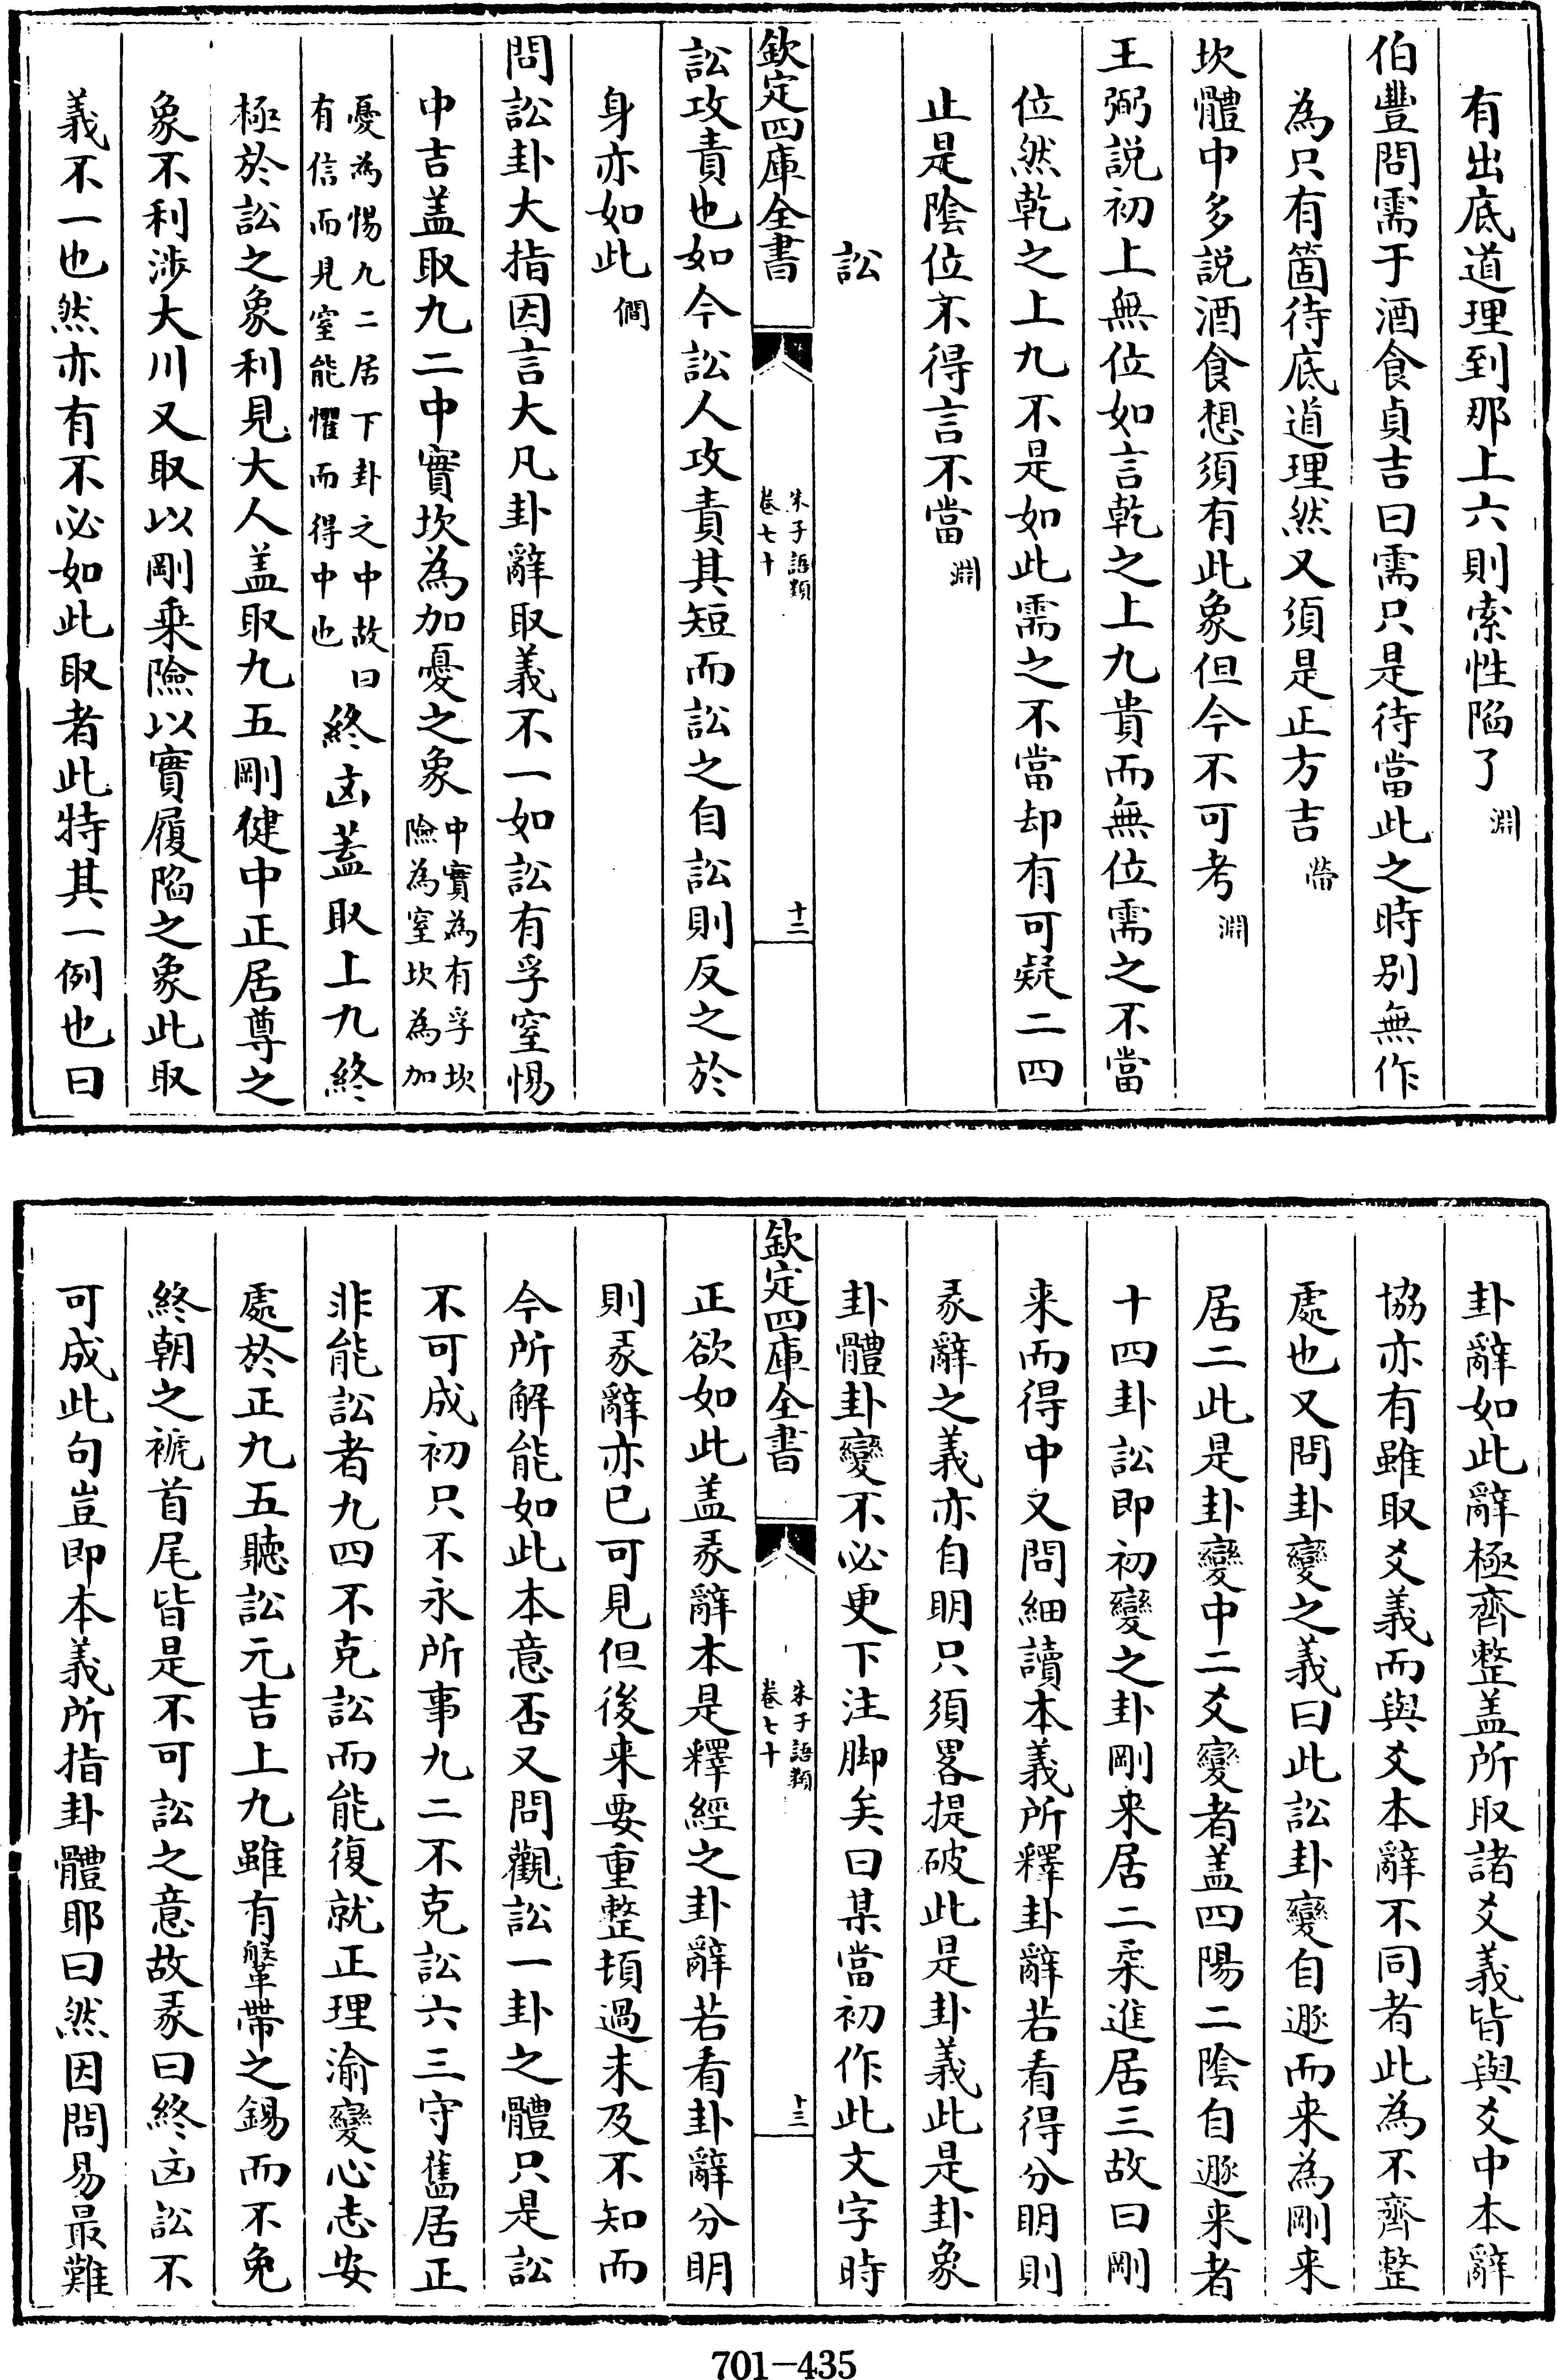 有出底道理到那上六則索性陷了淵
伯豐問需于酒食貞吉曰需只是待當此之時别無作
為只有箇待底道理然又須是正方吉㽦
坎體中多説酒食想須有此象但今不可考淵
王弼説初上無位如言乾之上九貴而無位需之不當
位然乾之上九不是如此需之不當却有可疑二四
止是陰位不得言不當淵
訟
欽定四庫全書
朱子語類
卷七十
十二
訟攻責也如今訟人攻責其短而訟之自訟則反之於
身亦如此僩
問訟卦大指因言大凡卦辭取義不一如訟有孚窒惕
中吉盖取九二中實坎為加憂之象中實為有孚坎
險為窒坎為加
憂為惕九二居下卦之中故曰
有信而見窒能懼而得中也終凶蓋取上九終
極於訟之象利見大人盖取九五剛健中正居尊之
象不利涉大川又取以剛乘險以實履陷之象此取
義不一也然亦有不必如此取者此特其一例也曰
卦辭如此辭極齊整盖所取諸爻義皆與爻中本辭
協亦有雖取爻義而與爻本辭不同者此為不齊整
處也又問卦變之義曰此訟卦變自遯而来為剛来
居二此是卦變中二爻變者盖四陽二陰自遯来者
十四卦訟即初變之卦剛来居二柔進居三故曰剛
来而得中又問細讀本義所釋卦辭若看得分明則
彖辭之義亦自明只須畧提破此是卦義此是卦象
卦體卦變不必更下注脚矣曰某當初作此文字時
欽定四庫全書
朱子語類
卷七十
十三
正欲如此盖彖辭本是釋經之卦辭若看卦辭分明
則彖辭亦已可見但後来要重整頓過未及不知而
今所解能如此本意否又問觀訟一卦之體只是訟
不可成初只不永所事九二不克訟六三守舊居正
非能訟者九四不克訟而能復就正理渝變心志安
處於正九五聽訟元吉上九雖有鞶帶之錫而不免
終朝之褫首尾皆是不可訟之意故彖曰終凶訟不
可成此句豈即本義所指卦體耶曰然因問易最難
701-435